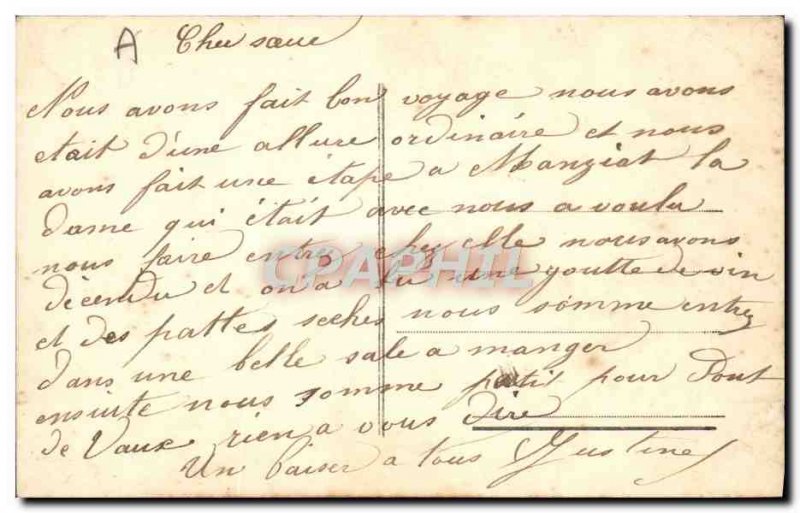 A Cher sœur
Nous avons fait bon voyage nous avons
etait d'une allure ordinaire et nous
avons fait une étape a Manziat la
dame qui était avec nous a voulu
nous faire entrez chez elle nous avons
décendu et on a bu une goutte de vin
et des pattes seches nous somme entrez
dans une belle sale a manger
ensuite nous somme partit pour Pont
de Vaux rien a vous dire
Un baiser a tous Justine
CPAPHIL